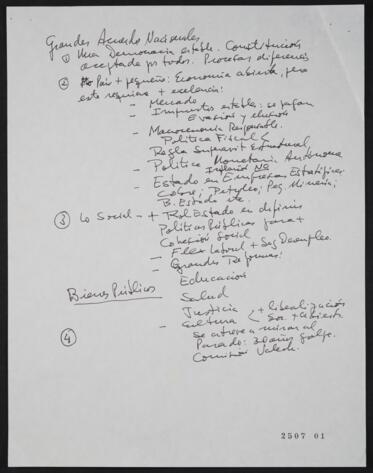 Grandes Acuerdos Nacionales
① Una Democracia estable. Constitución
aceptada por todos. Procesar diferencias
② País + pequeño: Economía abierta, pero
esto requiere + excelencia:
- Mercado
- Impuestos estable: se pagan
Evasión y elusión
- Macroeconomía Responsable.
Política Fiscal
Regla Superavit Estructural
- Política Monetaria Autónoma
Inflación NO
- Estado en Empresas Estratégicas
Cobre; Petróleo; Peq. Minería;
B. Estado etc.
③ Lo Social - + Rol Estado en definir
Políticas Públicas para +
Cohesión Social
- Flex Laboral + Seg Desempleo.
- Grandes Reformas:
Educación
Bienes Públicos
Salud
Justicia
- Cultura < + liberalización
Soc. + abierta
④ Se atreve a mirar al
Pasado: 30 años golpe.
Comisión Valech.
2507 01